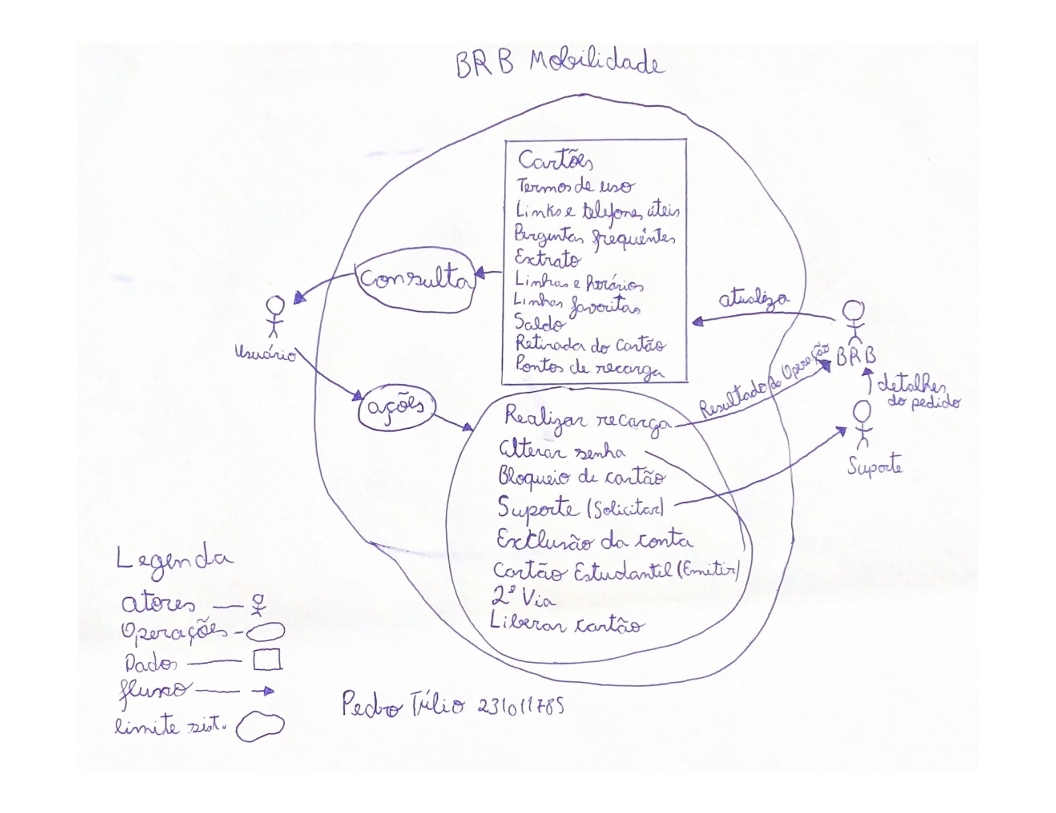 BRB Mobilidade
Cartões
Termos de uso
Links e telefones úteis
Perguntas frequentes
Extrato
Linhas e horários
Linhas favoritas
Saldo
Retirada do Cartão
Pontos de recarga
Consulta
Usuário
ações
atualiza
BRB
Resultado da Operação
detalhes
do pedido
Suporte
Realizar recarga
Alterar senha
Bloqueio de cartão
Suporte (Solicitar)
Exclusão da conta
Cartão Estudantil (Emitir)
2ª Via
Liberar cartão
Legenda
atores
Operações
Dados
fluxo
limite sist.
Pedro Túlio 231011785